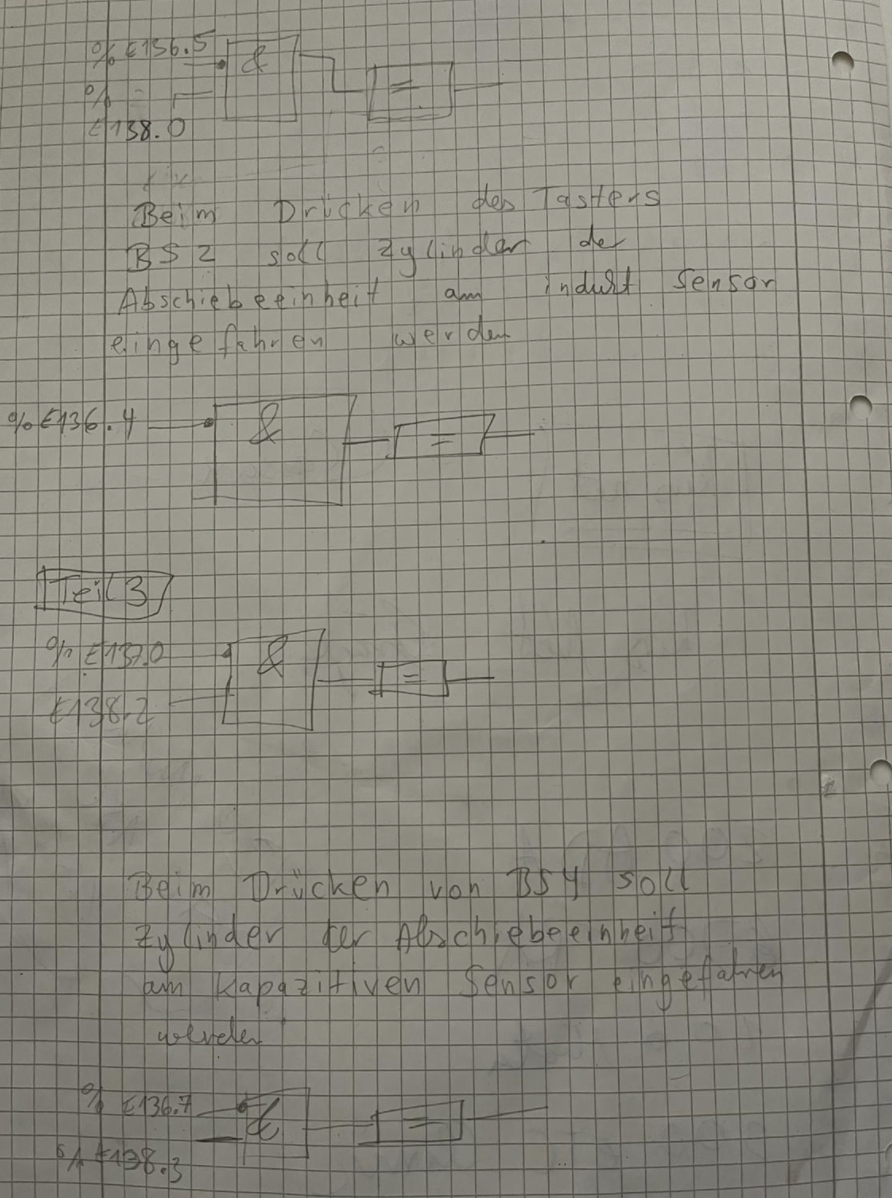 % E136.5
&
%
=
E138.0
Beim Drücken des Tasters
BS2 soll Zylinder der
Abschiebeeinheit am indukt Sensor
eingefahren werden
% E136.4
&
=
Teil 3
% E137.0
&
=
E138.2
Beim Drücken von BS4 soll
Zylinder der Abschiebeeinheit
am Kapazitiven Sensor eingefahren
werden
% E136.7
&
=
% E138.3